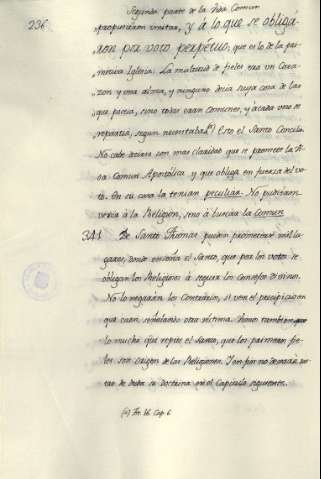 Segunda parte de la Vida Comun
236
propusieron imitar, y á lo que se obligá-
ron por voto perpétuo, que es lo de la pri-
mitiva Iglesia: La multitud de fieles era un Cora-
zon y una alma, y ninguno decia suya cosa de las
que poseia, sino todas eran comunes, y á cada uno se
repartia, segun necesitaba. (a) Esto el Santo Concilio.
No cabe decirse con mas claridad que se promete la Vi-
da Comun Apostólica, y que obliga en fuerza del vo-
to. En su casa la tenian peculiar. No pudieron
venir á la Religion, sino á buscar la comun
341 De Santo Thomas pueden prometerse mil lu-
gares, donde enseña el Santo, que por los votos se
obligan los Religiosos á seguir los Consejos divinos.
No lo negarán los Contrarios, si ven el precipicio en
que caen señalando otra víctima. Ahorro tambien
lo mucho que repite el Santo, que los primeros fie-
les son origen de las Religiones. Y aun por no
de duda su doctrina en el Capitulo siguiente.
(a) Cap. 6